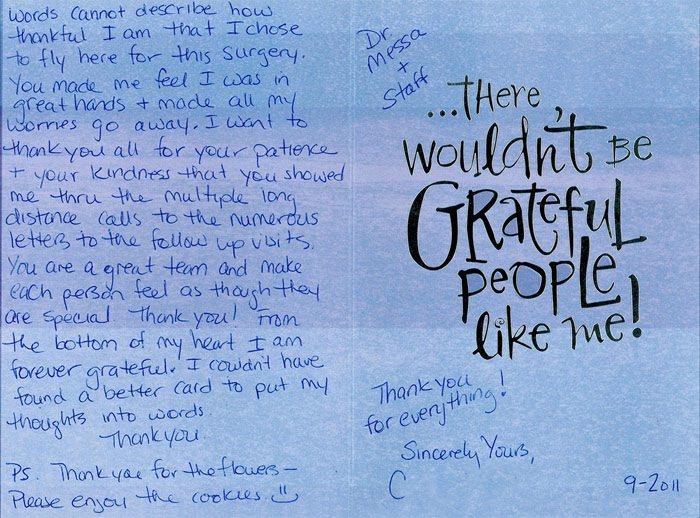 words cannot describe how
thankful I am that I chose
to fly here for this surgery.
You made me feel I was in
great hands + made all my
worries go away. I want to
thank you all for your patience
+ your kindness that you showed
me thru the multiple long
distance calls to the numerous
letters to the follow up visits.
You are a great team and make
each person feel as though they
are special. Thank you! From
the bottom of my heart I am
forever grateful. I couldn't have
found a better card to put my
thoughts into words.
Thank you
Ps. Thank you for the flowers –
Please enjoy the cookies.
Dr.
Messa
+
Staff
...there
wouldn't be
Grateful
people
like me!
Thank you
for everything!
Sincerely Yours,
C
9-2011